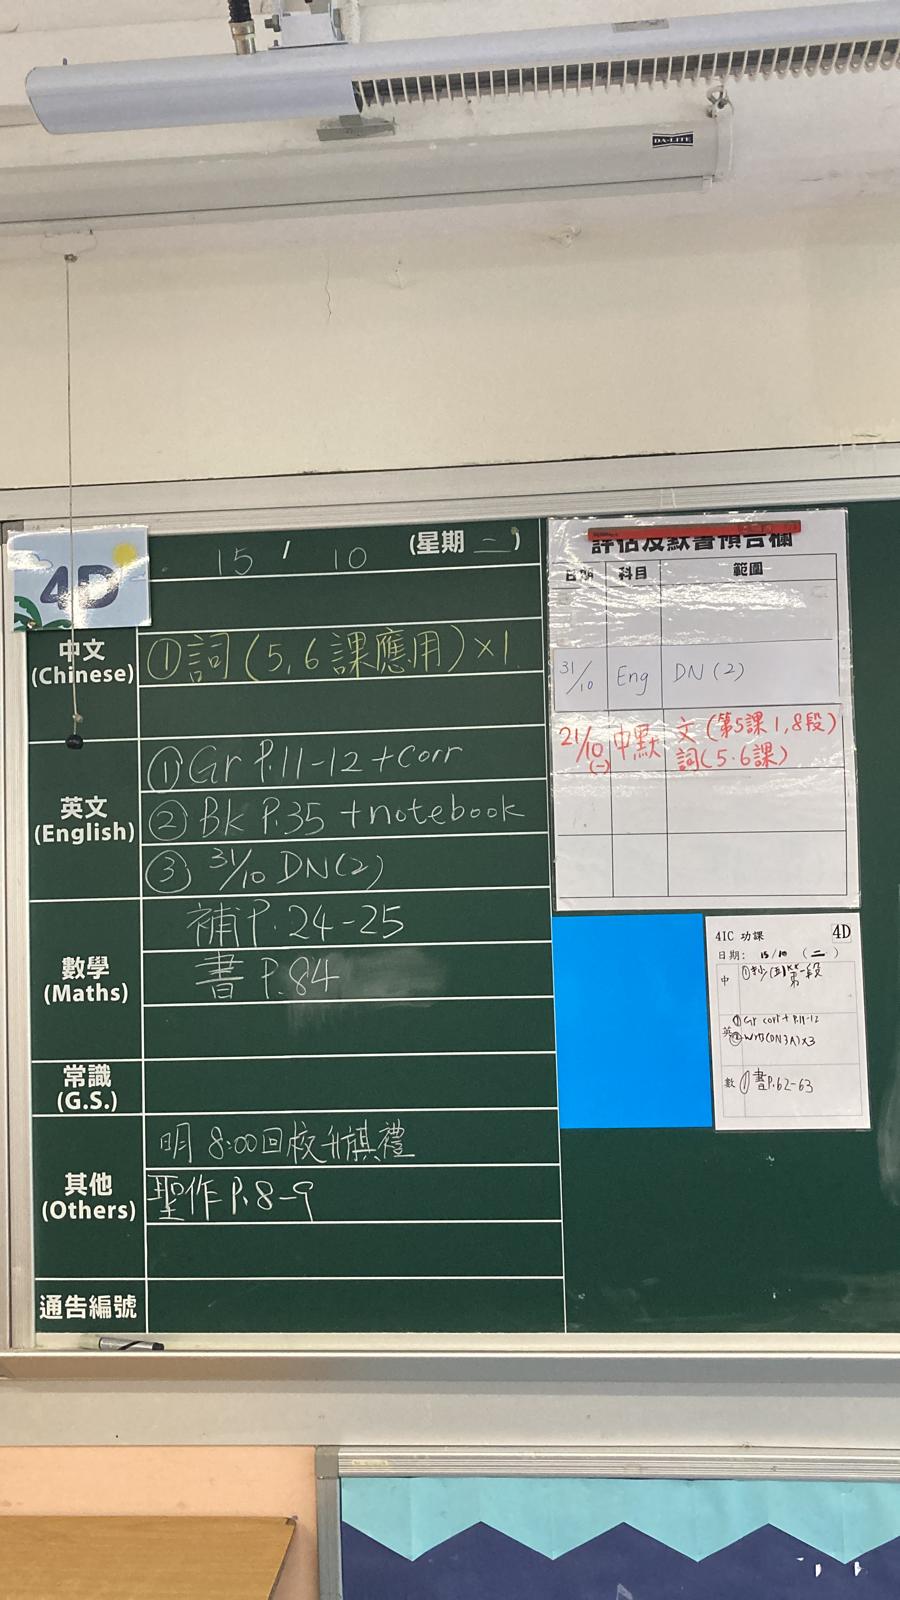 DA-LITE
4D
15 / 10 (星期 二)
中文
(Chinese)
①詞(5,6課應用)×1
英文
(English)
①Gr P.11-12 +corr
②Bk P.35 +notebook
③ 31/10 DN(2)
數學
(Maths)
補P.24-25
書P.84
常識
(G.S.)
其他
(Others)
明 8:00回校升旗禮
聖作 P.8-9
通告編號
評估及默書預告欄
日期 科目 範圍
31/10 Eng DN(2)
21/10 (一) 中默 文(第5課1,8段)
詞(5.6課)
4IC 功課 4D
日期: 15/10 (二)
中 ①抄 第一段
英 ①Gr corr + P.11-12
②W市(DN3A)x3
數 ①書P.62-63